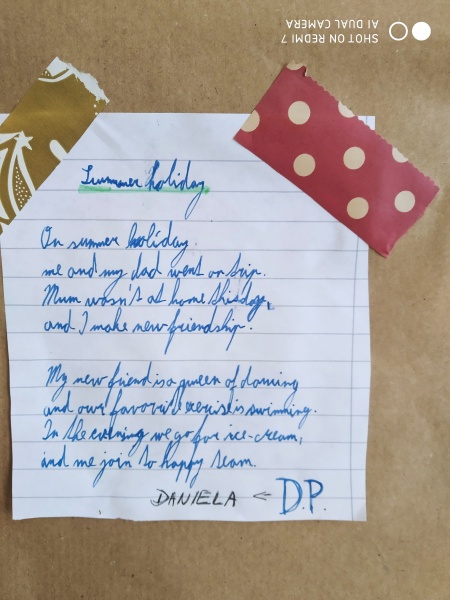 SHOT ON REDMI 7
AI DUAL CAMERA
Summer holiday
On summer holiday
me and my dad went on trip.
Mum wasn't at home this day,
and I make new friendship.
My new friend is a queen of dancing
and our favorite exercise is swimming.
In the evening we go for ice-cream,
and me join to happy team.
DANIELA < D.P.